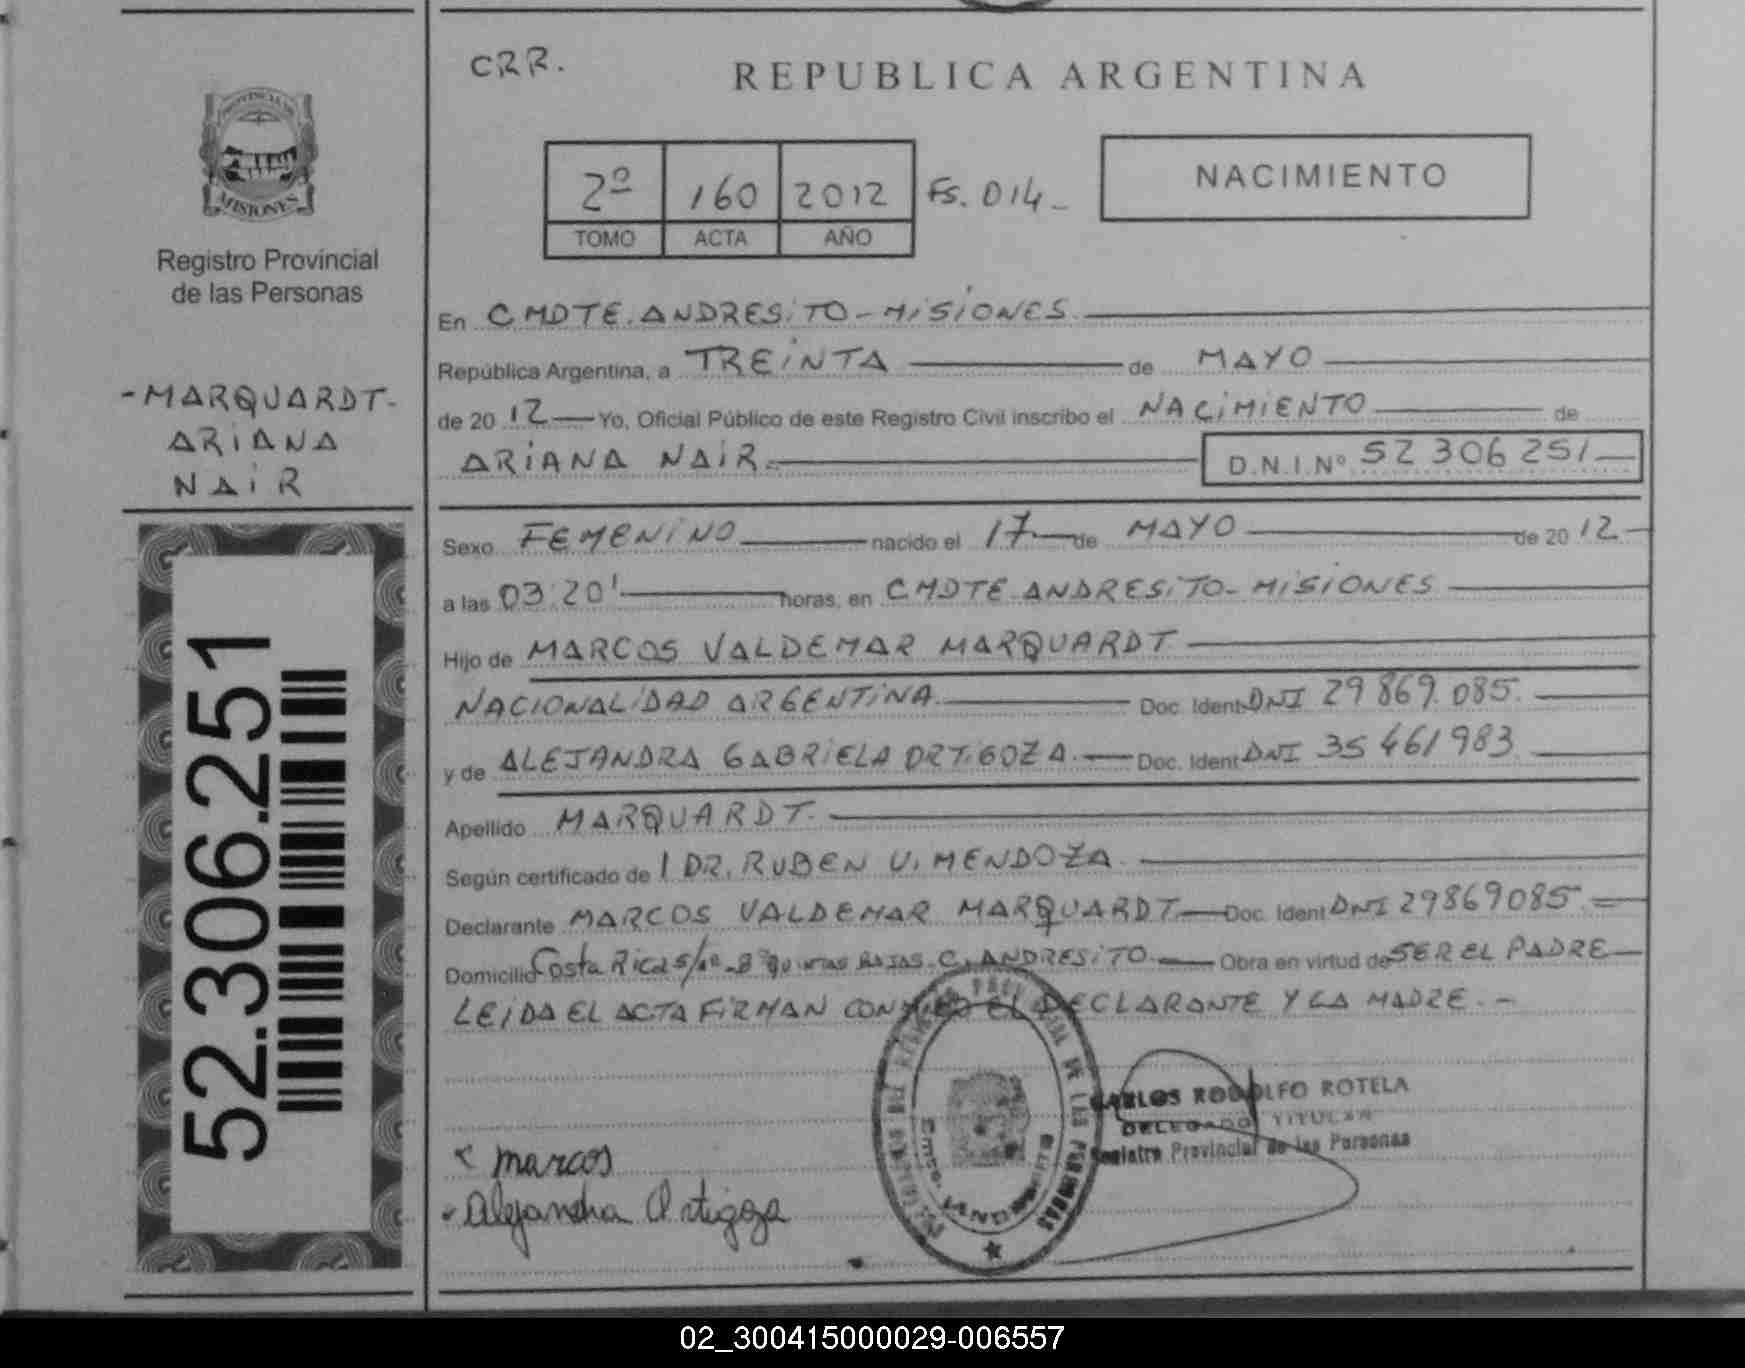 CRR.
REPUBLICA ARGENTINA
PROVINCIA DE
MISIONES
Registro Provincial
de las Personas
2º 160 2012 Fs. 014_
TOMO ACTA AÑO
NACIMIENTO
-MARQUARDT-
ARIANA
NAIR
52.306.251
En CMDTE. ANDRESITO - MISIONES
República Argentina, a TREINTA de MAYO
de 20 12 Yo, Oficial Público de este Registro Civil inscribo el NACIMIENTO de
ARIANA NAIR. D.N.I.Nº 52 306 251
Sexo FEMENINO nacido el 17 de MAYO de 20 12
a las 03:20' horas, en CMDTE ANDRESITO - MISIONES
Hijo de MARCOS VALDEMAR MARQUARDT
NACIONALIDAD ARGENTINA Doc. Ident DNI 29 869.085.
y de ALEJANDRA GABRIELA ORTIGOZA. Doc. Ident DNI 35 461983
Apellido MARQUARDT.
Según certificado de 1 DR. RUBEN U. MENDOZA.
Declarante MARCOS VALDEMAR MARQUARDT Doc. Ident DNI 29869085.
Domicilio Costa Rica s/nº - Bº QUINTAS BAJAS. C. ANDRESITO Obra en virtud de SER EL PADRE
LEIDA EL ACTA FIRMAN CONMIGO EL DECLARANTE Y LA MADRE.-
CARLOS RODOLFO ROTELA
DELEGADO TITULAR
Registro Provincial de las Personas
marcos
Alejandra Ortigoza
02_300415000029-006557